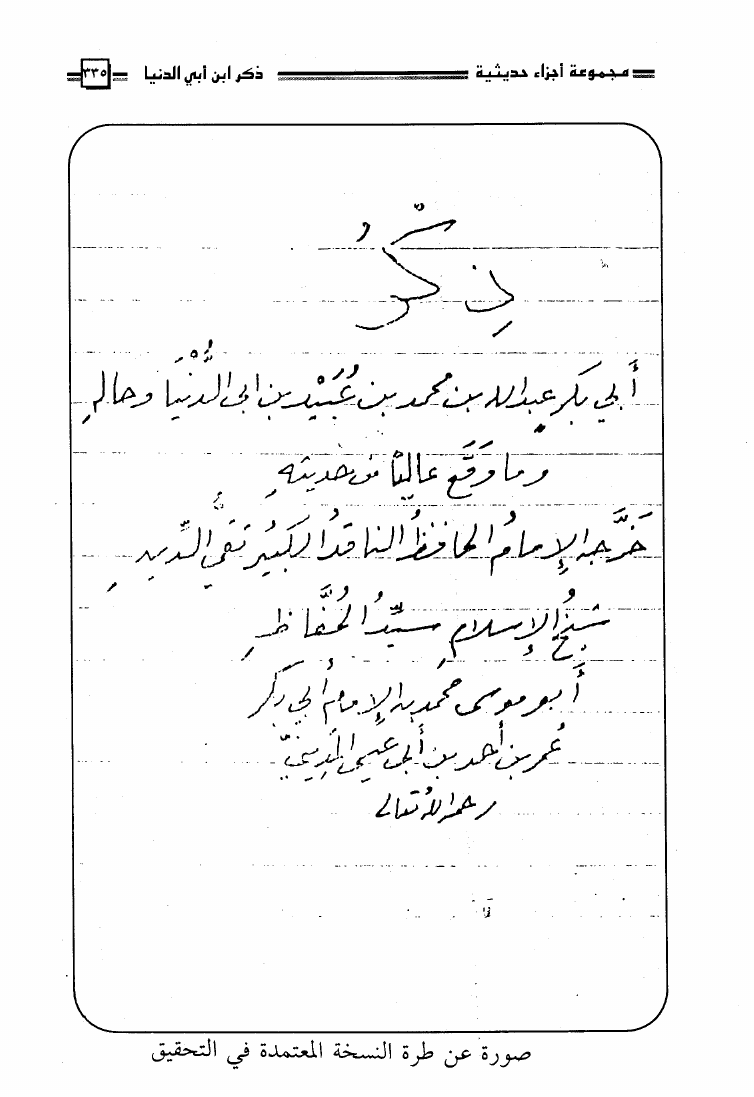 مجموعة أجزاء حديثية ذكر ابن أبي الدنيا ٣٣٥
ذِكْرُ
أَبي بكرٍ عبدالله بن محمد بن عُبَيْدِ بن ابى الدُّنْيَا وحالهِ
وما وَقَع عالياً من حديثهِ
خَرَّجه الإِمامُ الحافظُ الناقدُ الكَبيُر تَقيُّ الدِّينِ
شيخُ الإِسلامِ سيِّدُ الحُفَّاظِ
أَبو موسى محمد بن الإِمام أَبي بكر
عُمر بن أَحمد بن أَبى عيسى المَدِينيّ
رحمه اللهُ تعالى
صورة عن طرة النسخة المعتمدة في التحقيق